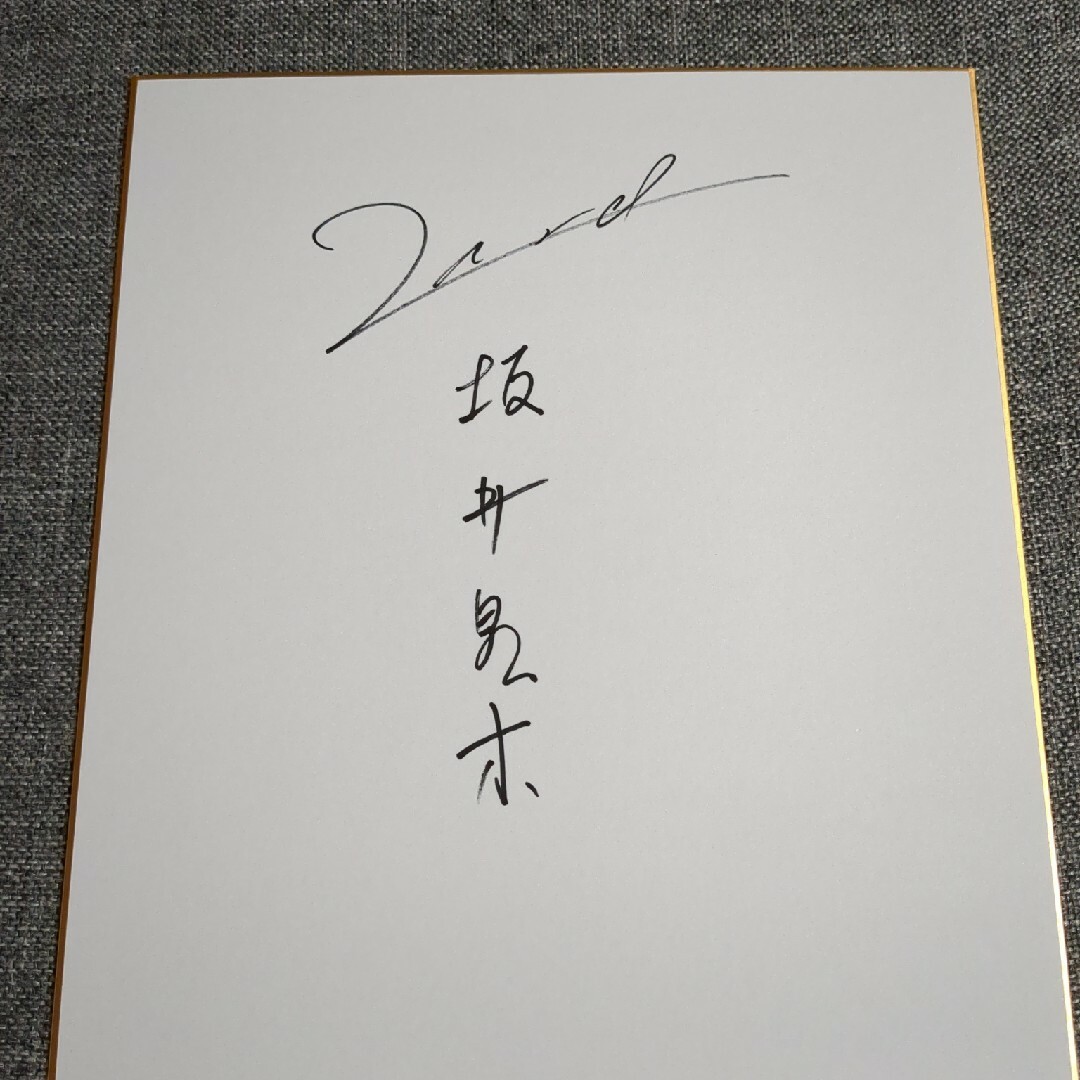 Zard
坂井泉水